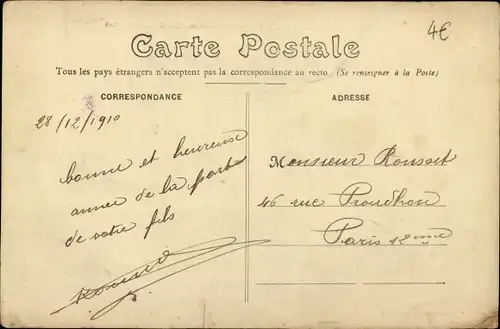 4€
Carte Postale
Tous les pays étrangers n'acceptent pas la correspondance au recto (Se renseigner à la Poste)
CORRESPONDANCE
28/12/1910
bonne et heureuse
annee de la part
de votre fils
ADRESSE
Monsieur Rousset
46 rue Proudhon
Paris 12me